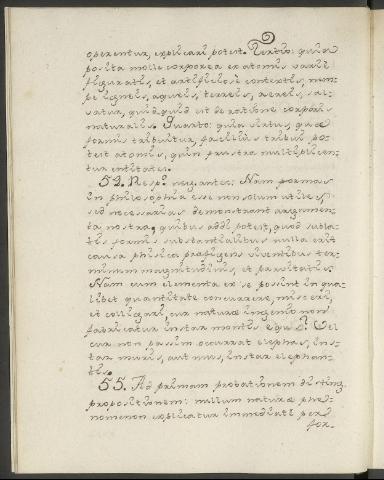 operentur, explicari potest. Tertio: quia
posita mole corporea ex atomis varie
figuratis, et artificiose contextis, nem-
pe igneis, aqueis, terreis, aereis, sal-
vatur, quidquid est de ratione corporis
naturalis. Quarto: quia status, quae
formis tribuitur, facilius tribui po-
test atomis, quin frustra multiplicen-
tur entitates.
54. Resp. negantes: Nam formas
in philosophia esse non solum utiles,
sed necessarias demonstrant argumen-
ta nostra, quibus addi potest, quod subla-
tis formis substantialibus nulla erit
causa physica praefigens viventibus ter-
minum magnitudinis, et parvitatis.
Nam cum elementa ex se possint in qua-
libet quantitate concurrere, misceri,
et colligari, cur naturae ingenio non
fabricatur instar montis equus? Vel
cur non passim occurrat elephas, ins-
tar muris, aut mus, instar elephan-
tis.
55. Ad primam probationem disting.
propositionem: nullum naturae phae-
nomenon explicatur immediate per
for-